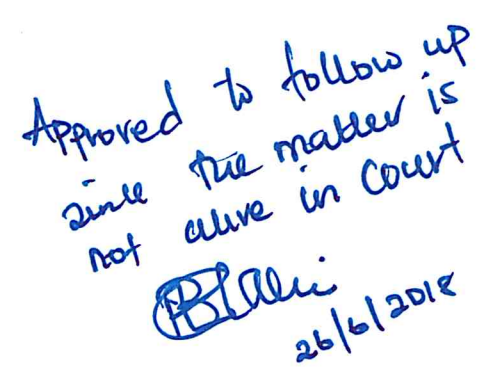 Approved to follow up
since the matter is
not alive in court
26/6/2018